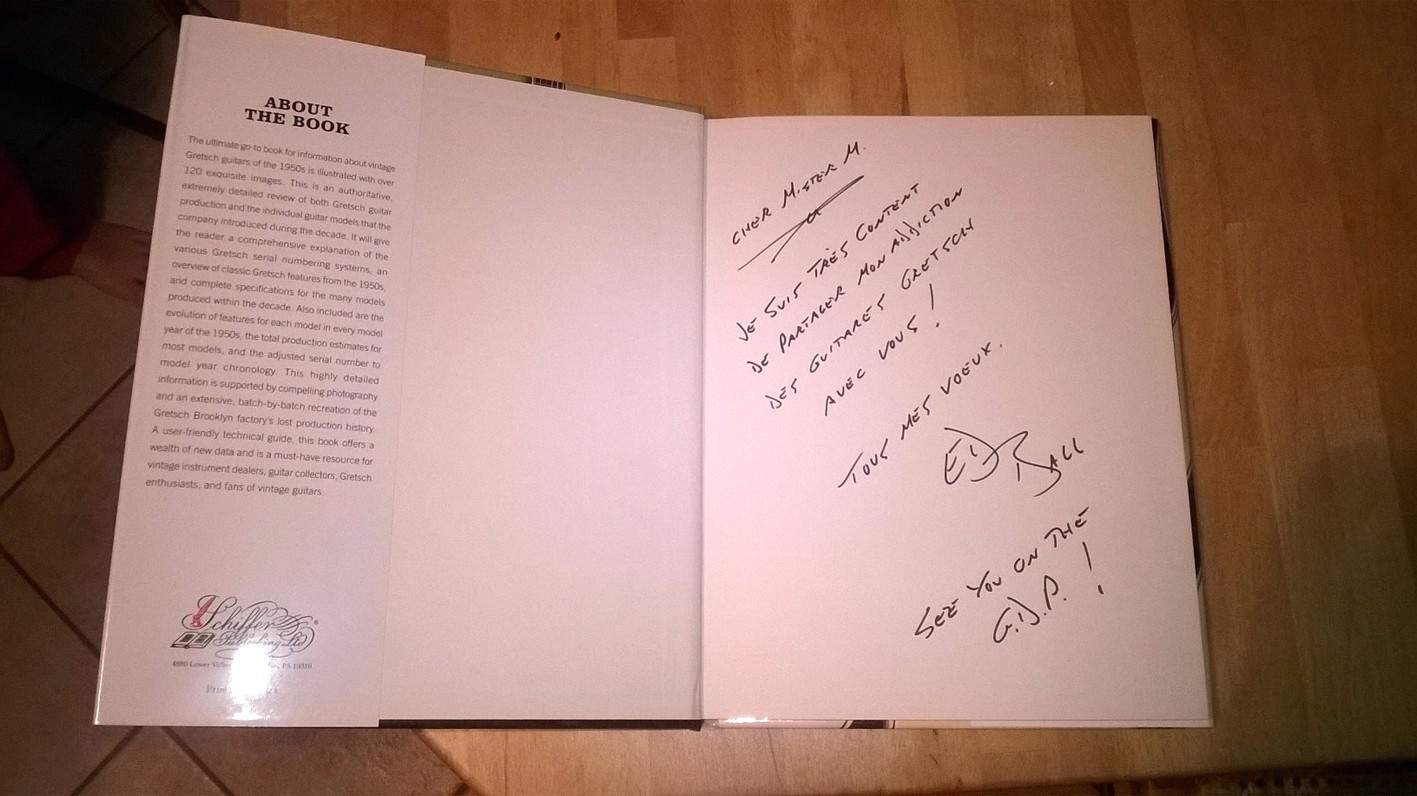 ABOUT
THE BOOK
The ultimate go-to book for information about vintage
Gretsch guitars of the 1950s is illustrated with over
120 exquisite images. This is an authoritative,
extremely detailed review of both Gretsch guitar
production and the individual guitar models that the
company introduced during the decade. It will give
the reader a comprehensive explanation of the
various Gretsch serial numbering systems, an
overview of classic Gretsch features from the 1950s,
and complete specifications for the many models
produced within the decade. Also included are the
evolution of features for each model in every model
year of the 1950s, the total production estimates for
most models, and the adjusted serial number to
model year chronology. This highly detailed
information is supported by compelling photography
and an extensive, batch-by-batch recreation of the
Gretsch Brooklyn factory's lost production history.
A user-friendly technical guide, this book offers a
wealth of new data and is a must-have resource for
vintage instrument dealers, guitar collectors, Gretsch
enthusiasts, and fans of vintage guitars.
Schiffer®
Publishing Ltd
4880 Lower PA 19310
CHER MISTER M.
JE SUIS TRÈS CONTENT
DE PARTAGER MON ADDICTION
DES GUITARES GRETSCH
AVEC VOUS!
TOUS MES VOEUX.
ED BALL
SEE YOU ON THE
G.D.P.!